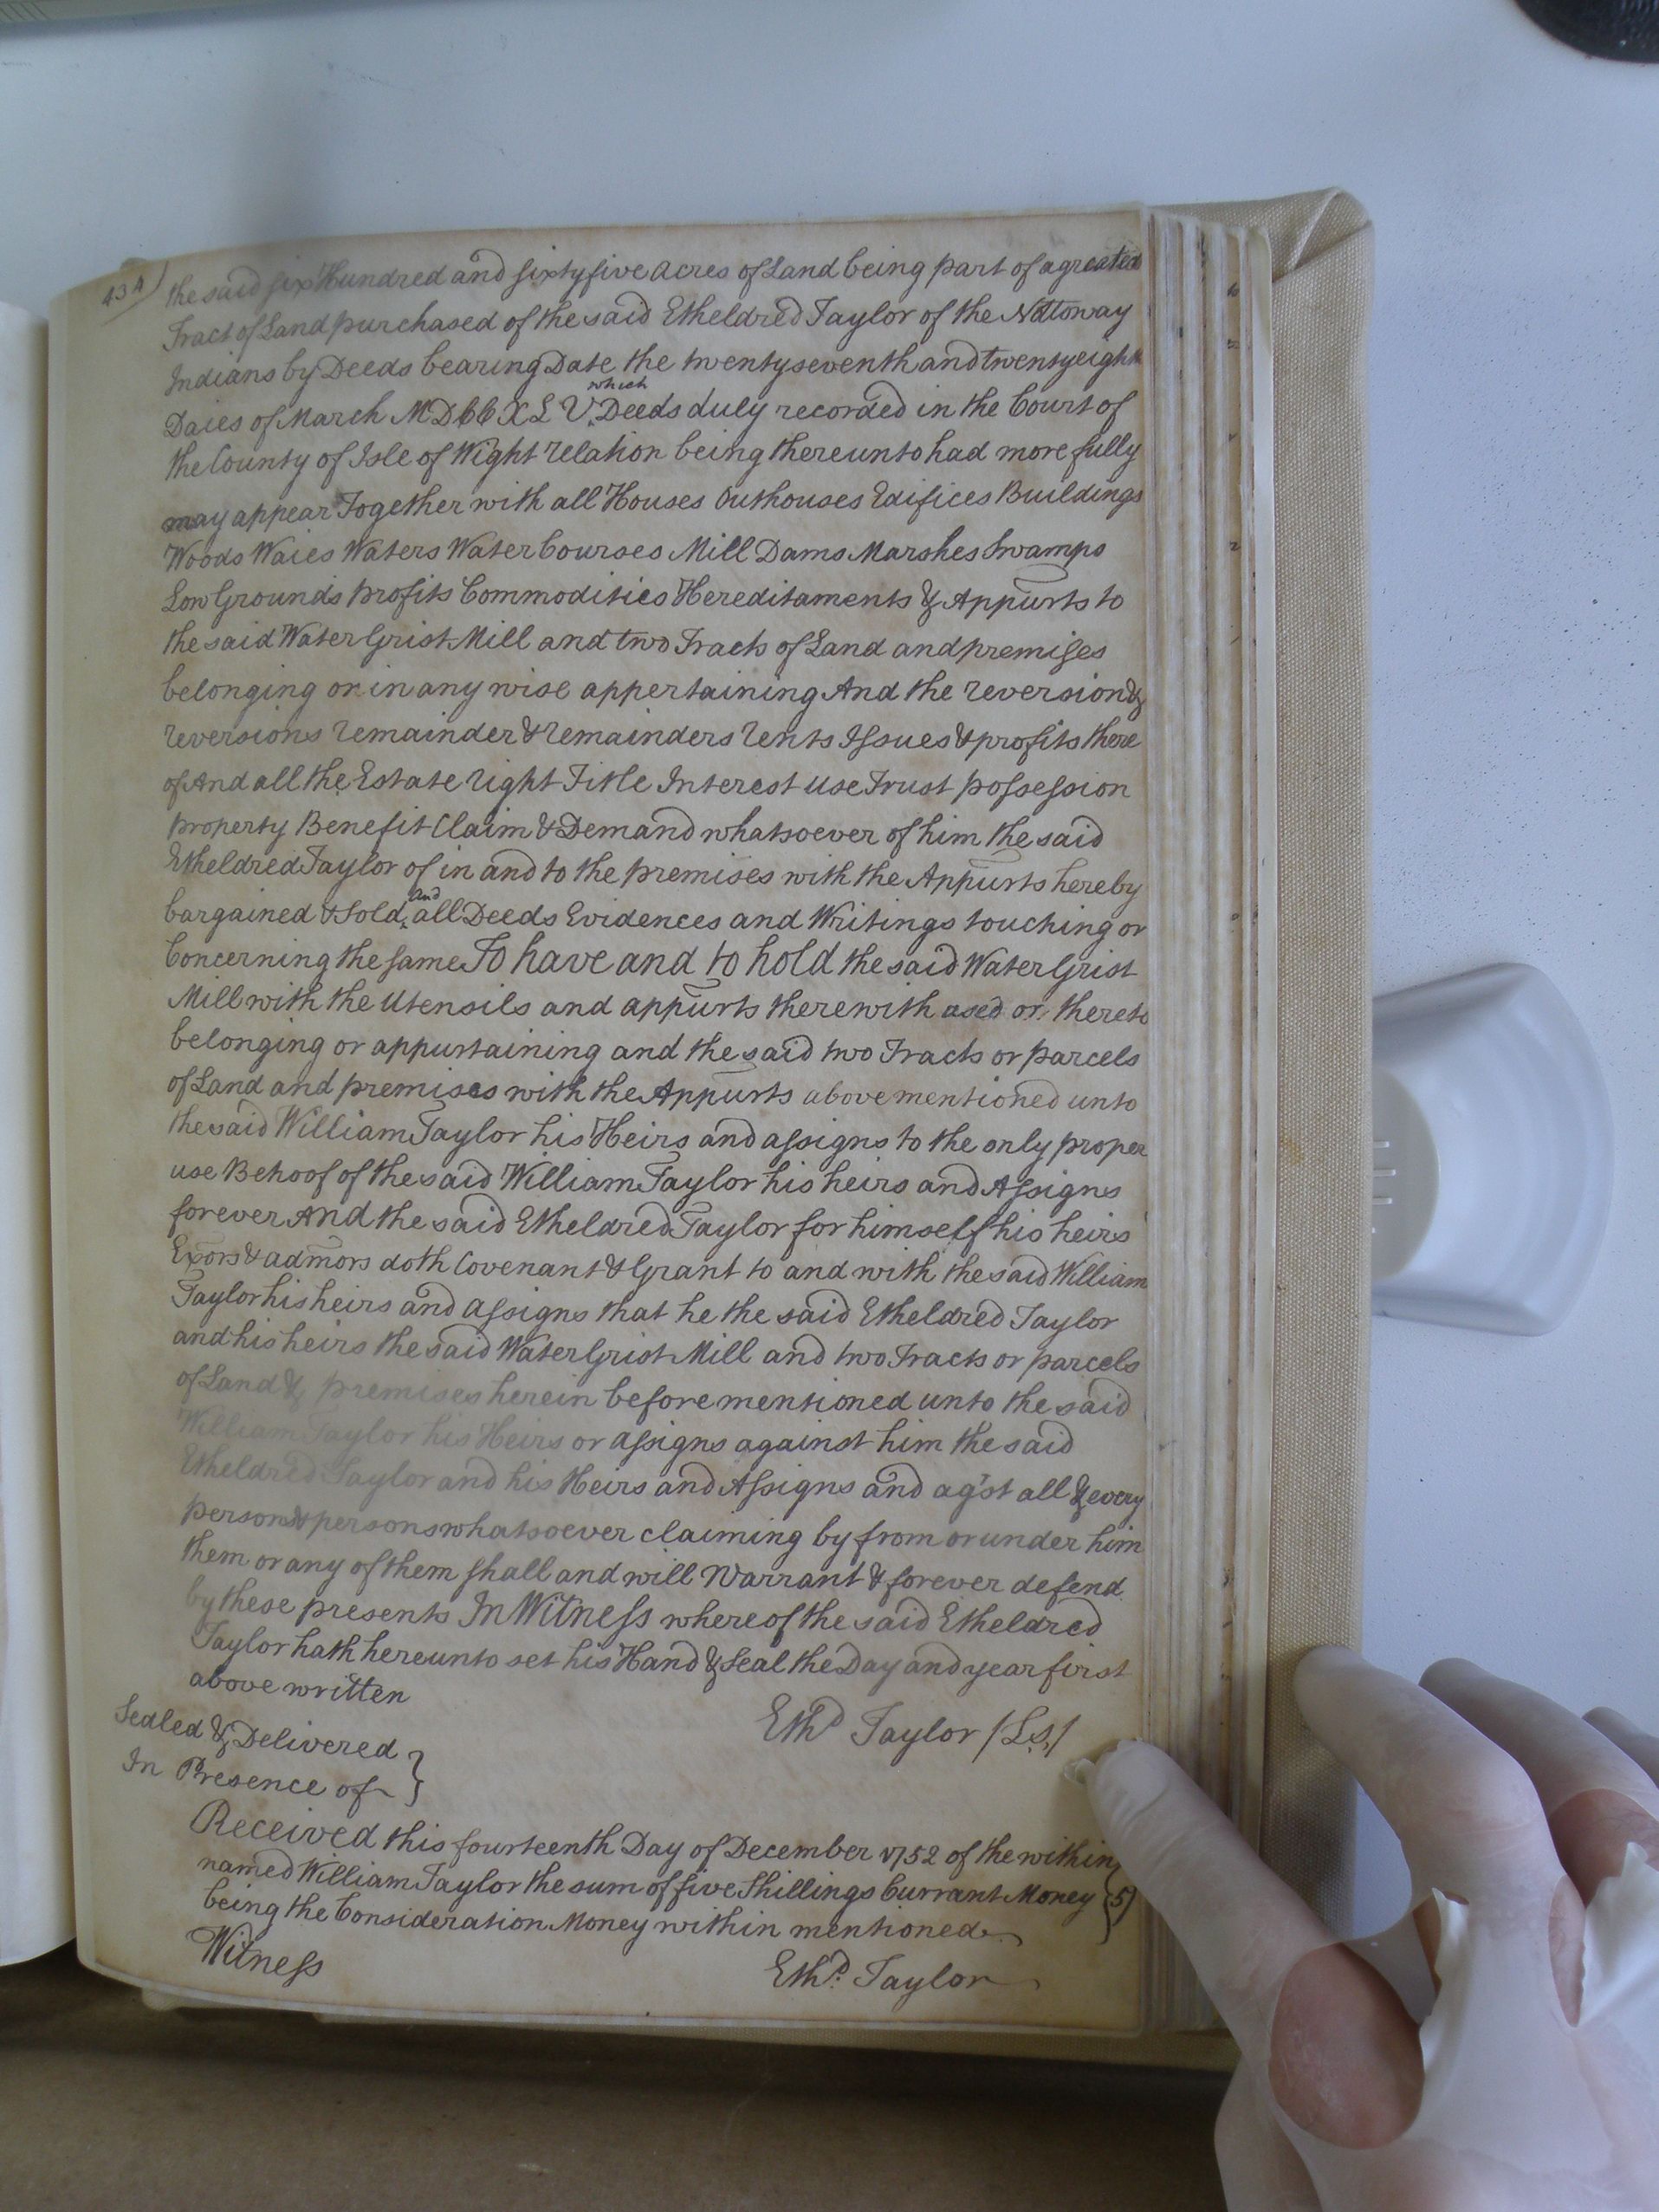 434)
the said six Hundred and sixty five Acres of Land being part of a greater
Tract of Land purchased of the said Etheldred Taylor of the Nottoway
Indians by Deeds bearing Date the twenty seventh and twenty eighth
which
Daies of March MDCCXLV. Deeds duly recorded in the Court of
the County of Isle of Wight relation being thereunto had more fully
may appear Together with all Houses Outhouses Edifices Buildings
Woods Waies Waters Water Courses Mill Dams Marshes Swamps
Low Grounds profits Commodities Hereditaments & Appurts to
the said Water Grist Mill and two Tracts of Land and premises
belonging or in any wise appertaining And the reversion &
reversions remainder & remainders rents Issues & profits there
of And all the Estate right Title Interest use Trust possession
property Benefit Claim & Demand whatsoever of him the said
Etheldred Taylor of in and to the premises with the Appurts hereby
and
bargained & Sold all Deeds Evidences and Writings touching or
Concerning the same To have and to hold the said Water Grist
Mill with the Utensils and appurts therewith used or thereto
belonging or appurtaining and the said two Tracts or parcels
of Land and premises with the Appurts above mentioned unto
the said William Taylor his Heirs and assigns to the only proper
use Behoof of the said William Taylor his heirs and Assigns
forever And the said Etheldred Taylor for himself his heirs
Exors & admors doth Covenant & Grant to and with the said William
Taylor his heirs and assigns that he the said Etheldred Taylor
and his heirs the said Water Grist Mill and two Tracts or parcels
of Land & premises herein before mentioned unto the said
William Taylor his Heirs or assigns against him the said
Etheldred Taylor and his Heirs and Assigns and ag'st all & every
person & persons whatsoever claiming by from or under him
them or any of them shall and will Warrant & forever defend
by these presents In Witness whereof the said Etheldred
Taylor hath hereunto set his Hand & Seal the Day and year first
above written
Ethd Taylor /Ls/
Sealed & Delivered
In Presence of }
Received this fourteenth Day of December 1752 of the within
named William Taylor the sum of five Shillings Currant Money } 5/
being the Consideration Money within mentioned
Witness
Ethd. Taylor